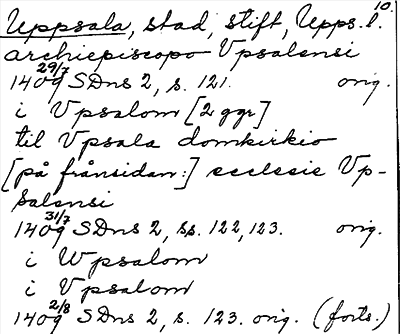 10.
Uppsala, stad, stift, Upps. l.
archiepiscopo Vpsalensi
29/7
1409 SDns 2, s. 121. orig.
i Vpsalom [2 ggr]
til Vpsala domkirkio
[på frånsidan:] ecclesie Vp-
salensi
31/7
1409 SDns 2, ss. 122, 123. orig.
i Wpsalom
i Vpsalom
2/8
1409 SDns 2, s. 123. orig. (forts.)